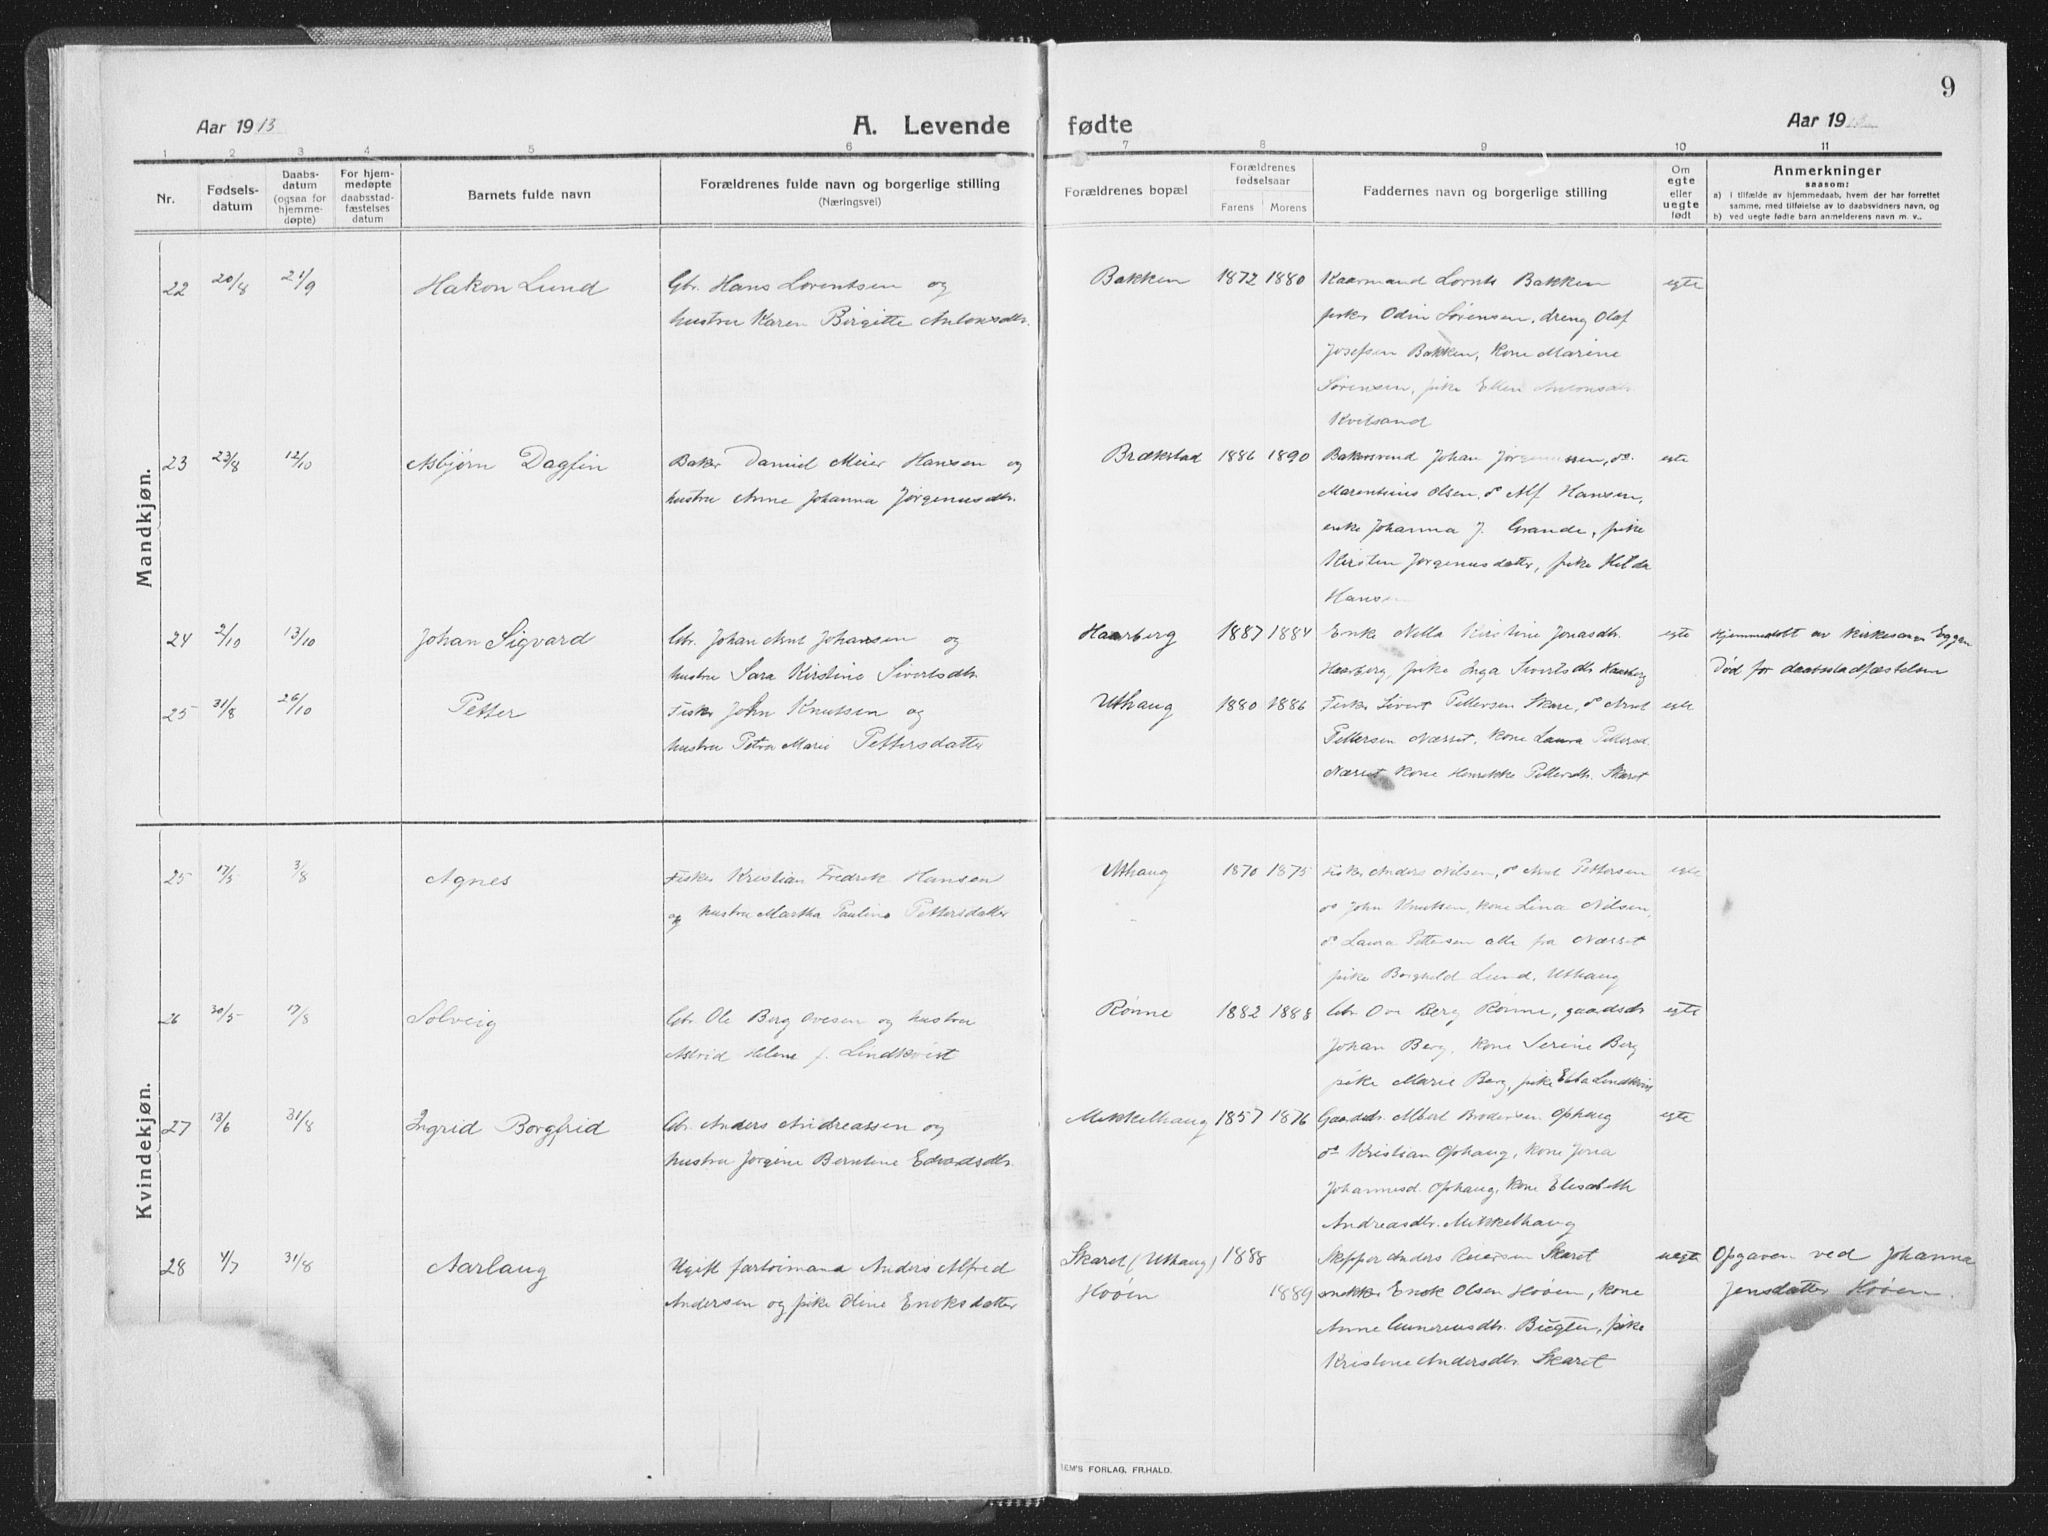 9
Aar 1913
A. Levende fødte
Aar 19
1 2 3 4 5 6 7 8 9 10 11
Nr.
Fødsels-datum
Daabs-datum (ogsaa for hjemme-døpte)
For hjem-medøpte daabsstad-fæstelses datum
Barnets fulde navn
Forældrenes fulde navn og borgerlige stilling
(Næringsvei)
Forældrenes bopæl
Forældrenes fødselsaar
Farens Morens
Faddernes navn og borgerlige stilling
Om egte eller uegte født
Anmerkninger
saasom:
a) i tilfælde av hjemmedaab, hvem der har forrettet
samme, med tilføielse av to daabsvidners navn, og
b) ved uegte fødte barn anmelderens navn m. v..
Mandkjøn.
22 20/8 21/9 Hakon Lund Gbr. Hans Lorentsen og Bakken 1872 1880 Kaarmand Lornts Bakken egte
hustru Karen Birgitte Antonsdtr. fisker Odin Sørensen, dreng Olaf
Josefsen Bakken, kone Marine
Sørensen, pike Ellen Antonsdtr.
Kvilsand
23 23/8 12/10 Asbjørn Dagfin Baker Daniel Meier Hansen og Brækstad 1886 1890 Bakersvend Johan Jørgenussen, do egte
hustru Anne Johanna Jørgenusdtr. Marentius Olsen, do Alf Hansen,
enke Johanna J. Grande, pike
Kirsten Jørgenusdatter, pike Hilda
Hansen
24 2/10 13/10 Johan Sigvard Gbr. Johan Arnt Johansen og Haarberg 1887 1884 Enke Nella Kirstine Jonasdtr. egte Hjemmedøbt av kirkesanger Eggen
hustru Sara Kirstine Sivertsdtr. Haarberg, pike Inga Sivertsdtr. Haarberg Død før daabsstadfæstelsen
25 31/8 26/10 Petter Fisker John Knutsen og Uthaug 1880 1886 Fisker Sivert Pettersen Skare, do Arnt egte
hustru Petra Marie Pettersdatter Pettersen Næsset, kone Laura Pettersd.
Næsset kone Henrikke Pettersdtr. Skaret
Kvindekjøn.
25 17/5 3/8 Agnes Fisker Kristian Fredrik Hansen Uthaug 1870 1875 Fisker Anders Nilsen, do Arnt Pettersen egte
og hustru Martha Pauline Pettersdatter do John Knutsen, kone Lina Nilsen,
do Laura Pettersen alle fra Næsset
pike Borghild Lund, Uthaug
26 30/5 17/8 Solveig Gbr. Ole Berg Ovesen og hustru Rønne 1882 1888 Gbr. Ove Berg Rønne, gaardbr. egte
Astrid Helene f. Lindkvist Johan Berg, kone Serine Berg
pike Marie Berg, pike Ebba Lindkvist
27 13/6 31/8 Ingrid Borgfrid Gbr. Anders Andreassen og Mikkelhaug 1857 1876 Gaardbr. Albert Brodersen Ophaug egte
hustru Jørgine Berntine Edvardsdtr. do Kristian Ophaug, kone Jona
Johannesd. Ophaug, kone Elisabeth
Andreasdtr. Mikkelhaug
28 4/7 31/8 Aarlaug Ugift fartøimand Anders Alfred Skaret (Uthaug) 1888 Skipper Anders Reiersen Skaret uegte Opgaven ved Johanna
Andersen og pike Oline Enoksdatter Høøen 1889 snekker Enok Olsen Høøen, kone Jensdatter Høøen.
Anne Gunereusdtr. Bugten, pike
Kristine Andersdtr. Skaret
EM'S FORLAG. FR.HALD.